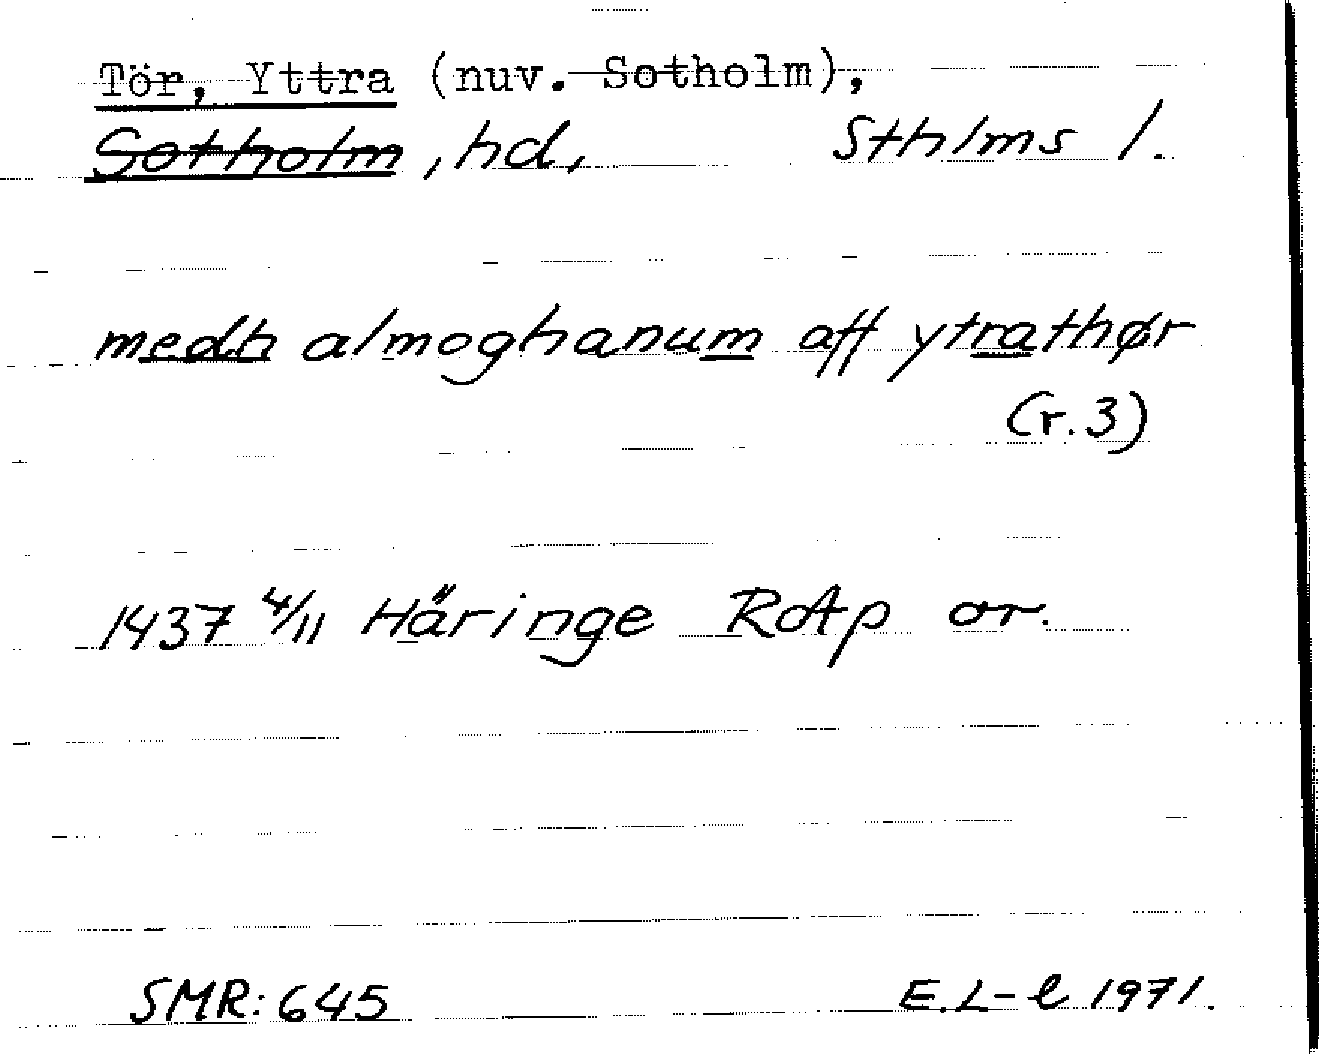 Tör, Yttra (nuv. Sotholm),
Sotholm, hd, Sthlms l.
medh almoghanum aff ytrathør
(r. 3)
1437 4/11 Häringe RAp or.
SMR: 645 E. L-l 1971.